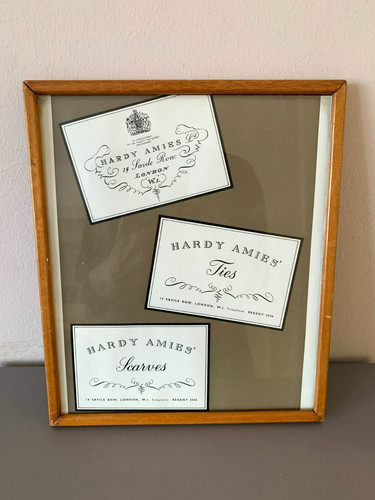 HARDY AMIES Ltd
14 Savile Row
LONDON
W.1.
HARDY AMIES'
Ties
14 SAVILE ROW, LONDON, W.1. Telephone: REGENT 2436
HARDY AMIES'
Scarves
14 SAVILE ROW, LONDON, W.1. Telephone: REGENT 2436